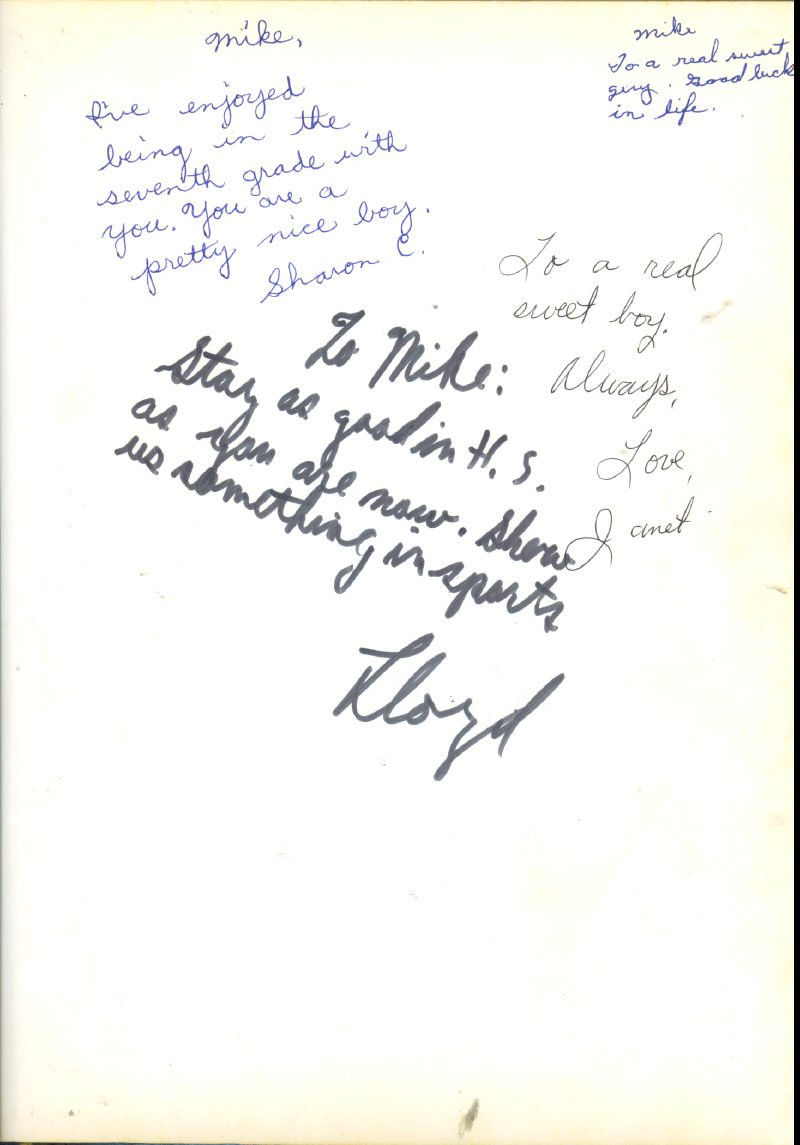 Mike,
I've enjoyed
being in the
seventh grade with
you. You are a
pretty nice boy.
Sharon C.
Mike
To a real sweet
guy. Good luck
in life.
To a real
sweet boy.
Always,
Love,
Janet
To Mike:
Stay as good in H. S.
as you are now. Show
us something in sports
Lloyd